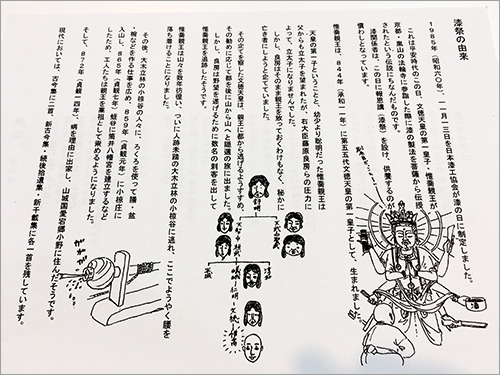 漆祭の由来
1985年（昭和六〇年）、一一月一三日を日本漆工協会が漆の日に制定しました。
これは平安時代のこの日、文徳天皇の第一皇子・惟喬親王が
京都・嵐山の法輪寺に参詣した際に漆の製法を菩薩から伝授
されたという伝説にちなんだものです。
漆関係者は、この日に報恩講（漆祭）を設け、供養するのが
慣わしとなっています。
惟喬親王は、844年（承和一一年）に第五五代文徳天皇の第一皇子として、生まれました。
天皇の第一子ということと、幼少より聡明だった惟喬親王は
父からも立太子を望まれたが、右大臣藤原良房らの圧力に
よって、立太子になりませんでした。
しかし、良房はそのまま親王を放っておくわけもなく、秘かに
亡き者にしようと企てていました。
その企てを察した文徳天皇は、親王に都から逃げるようすすめ、
その勧めに応じて都を後に山から山へと隠遁の旅に出ました。
しかし、良房は野望を遂げるために数名の刺客を出して
惟喬親王を追跡したそうです。
惟喬親王は山々を数年彷徨い、ついに人跡未踏の大木立林の小椋谷に逃れ、ここでようやく腰を
落ち着けることになりました。
その後、大木立林の小椋谷の人に、ろくろを使って膳・盆
・椀などを作る仕事を広め、859年（貞観元年）に小椋庄に
入山し、865年（貞観七年）蛭谷に筒井八幡宮を建立するなど
したため、工人たちは親王を業祖として崇めるようになりました。
そして、872年（貞観一四年）、病を理由に出家し、山城国愛宕郡小野に住んだそうです。
現代においては、古今集に二首、新古今集・続後拾遺集・新千載集に各一首を残しています。